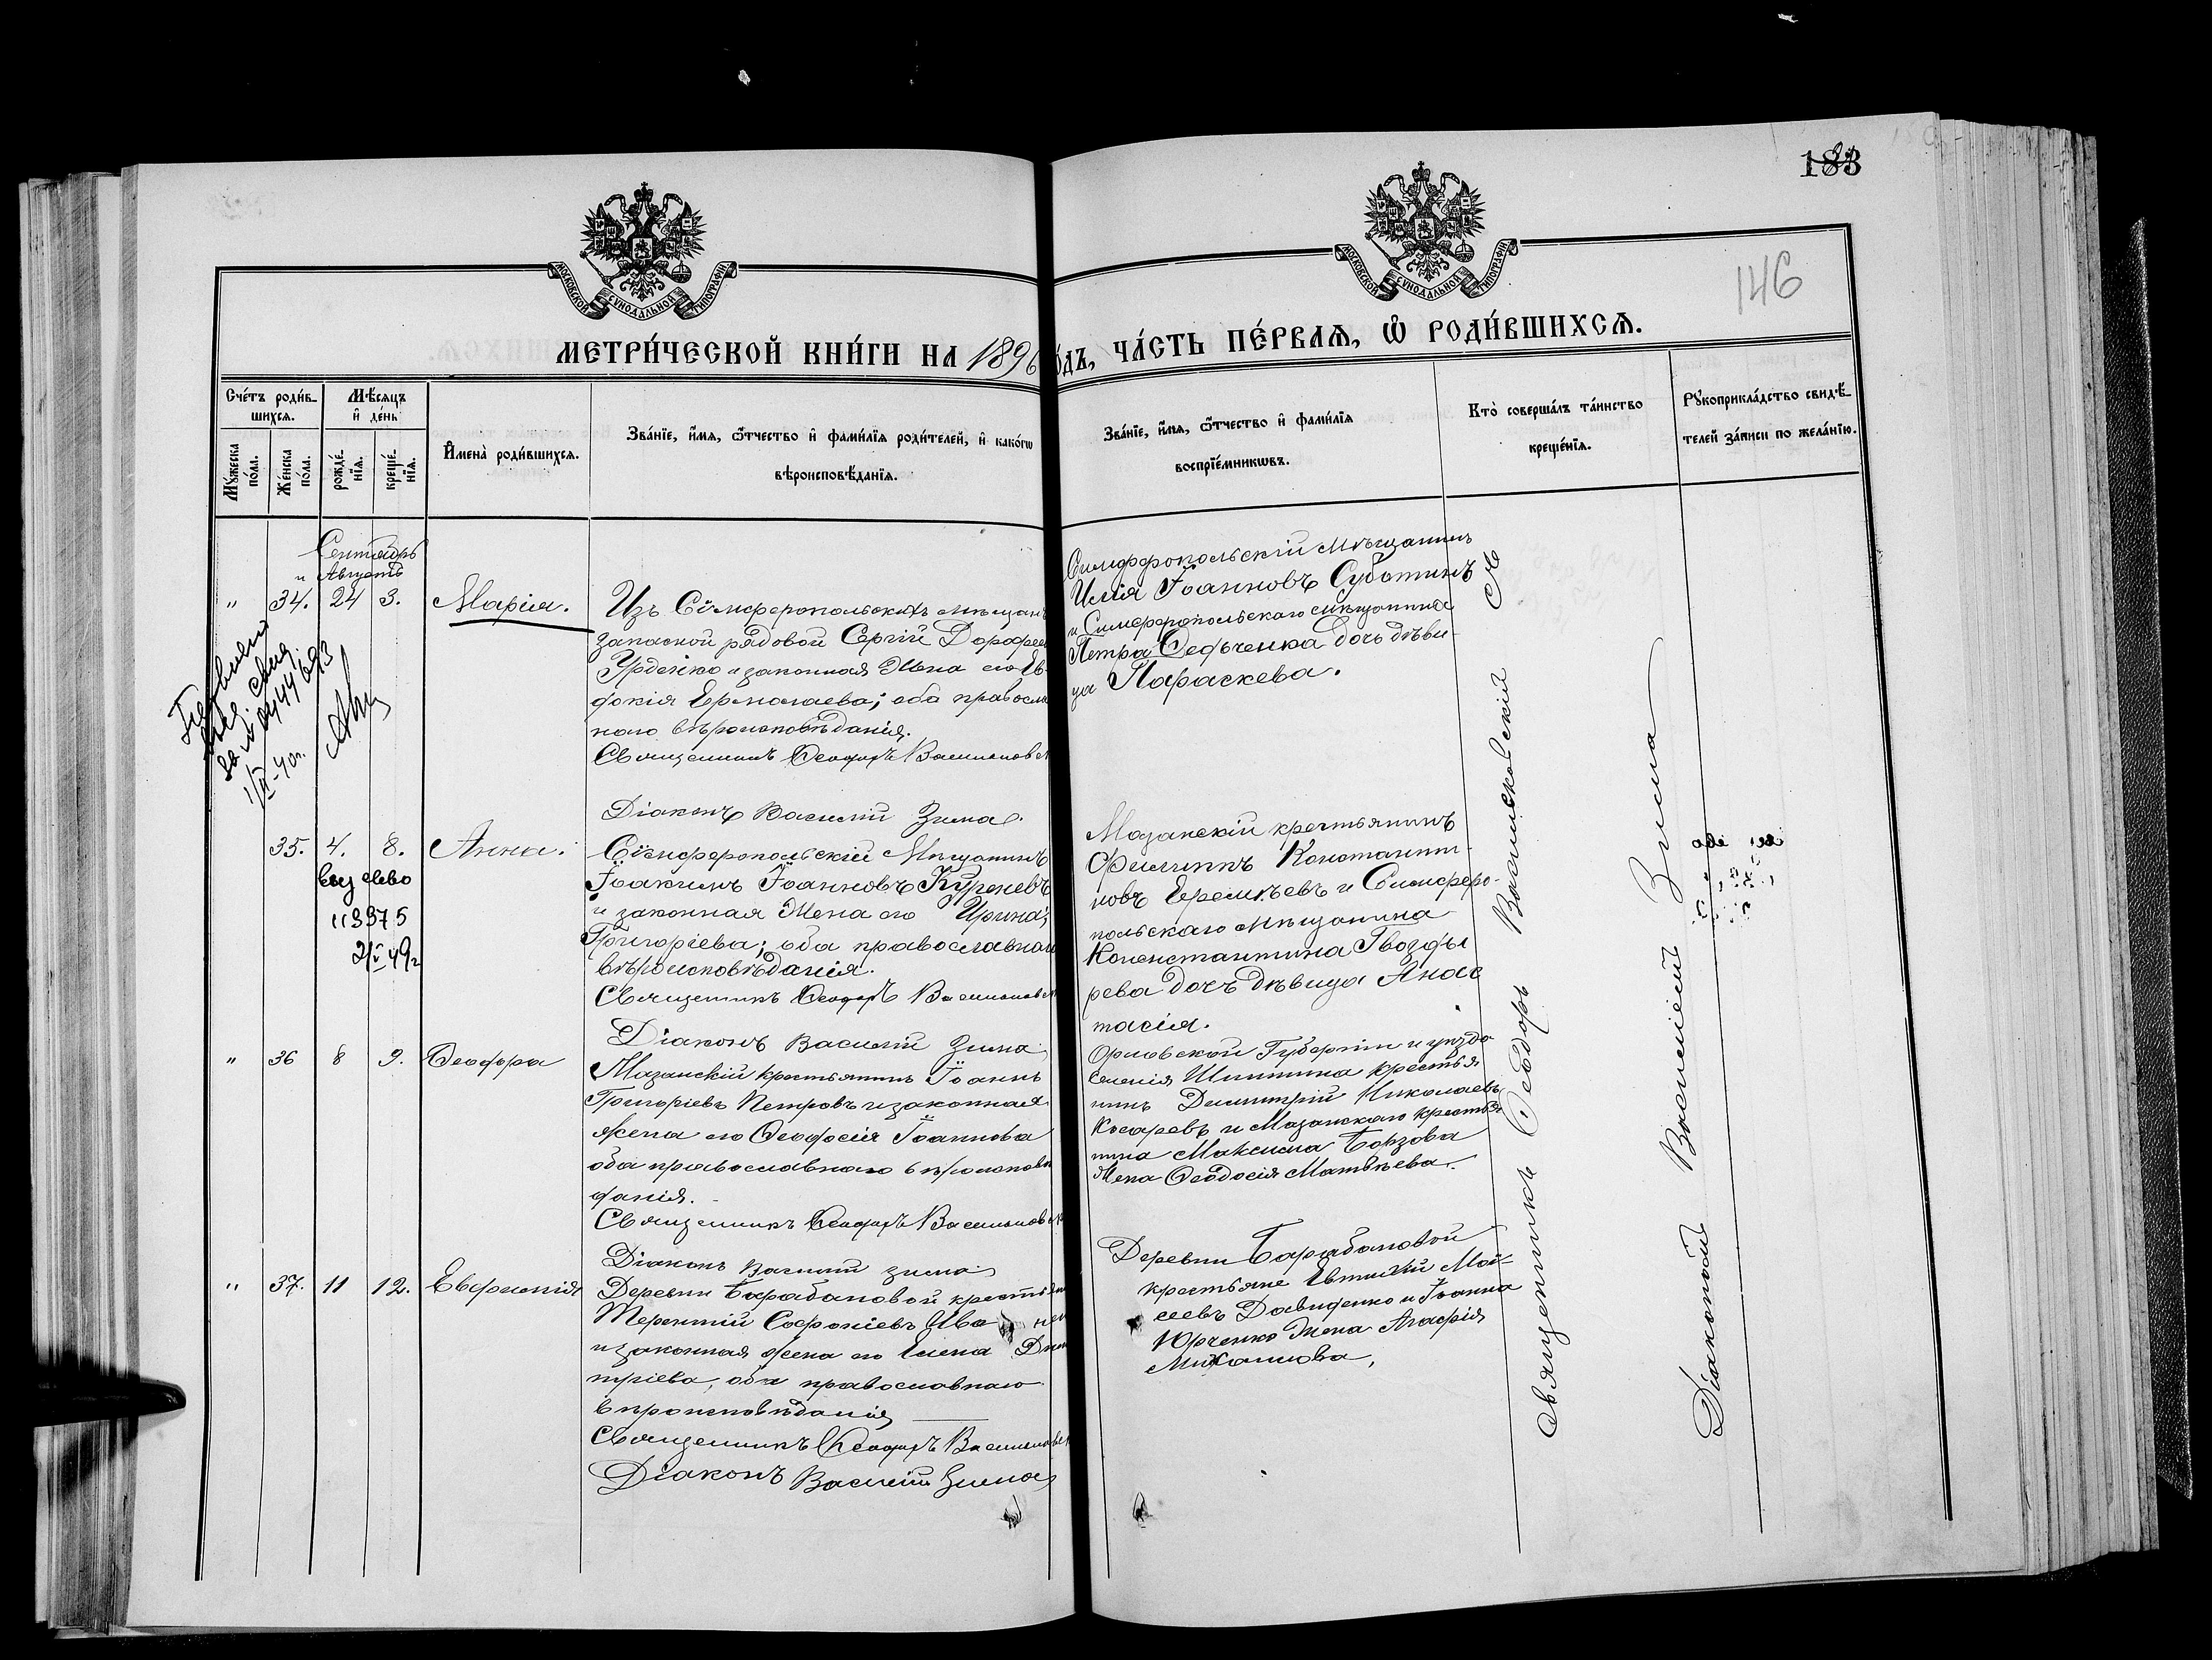 183
146
МОСКОВСКОЙ СѴНОДАЛЬНОЙ ТИПОГРАФІИ
МОСКОВСКОЙ СѴНОДАЛЬНОЙ ТИПОГРАФІИ
МЕТРИ́ЧЕСКОЙ КНИ́ГИ НА 1896
О́ДЪ, ЧА́СТЬ ПЕ́РВАѦ, Ѽ РОДИ́ВШИХСѦ.
Сче́тъ роди́в-
шихсѧ.
Мꙋ́жеска по́ла.
Же́нска по́ла.
Мѣ́сѧцъ
и҆ де́нь
рожде́-
нїѧ.
креще́-
нїѧ.
И҆мена̀ роди́вшихсѧ.
Зва́нїе, и҆́мѧ, ѻ҆́тчество и҆ фами́лїѧ роди́телей, и҆ како́гѡ
вѣроисповѣ́данїѧ.
Зва́нїе, и҆́мѧ, ѻ҆́тчество и҆ фами́лїѧ
воспрїе́мникѡвъ.
Кто̀ соверша́лъ та́инство
креще́нїѧ.
Рꙋкоприкла́дство свидѣ́-
телей за́писи по жела́нїю.
Сентябрь
и Августъ
" 34. 24 3. Марія.
Изъ Сімферопольскихъ мѣщанъ
запасной рядовой Сергій Дорофеев
и законная Жена его Ев-
докія Ермолаева; оба правосла
наго вѣроисповѣданія.
Священникъ Ѳеодоръ Васильковск
Діаконъ Василій Зима.
Симферопольскій Мѣщанинъ
Илія Іоанновъ Суботинъ
и Симферопольскаго мѣщанина
Петра дочь дѣви-
ца Параскева.
35. 4. 8. Анна.
113375
Сімферопольскій Мѣщанинъ
Іоакимъ Іоанновъ Куреневъ
и законная Жена его Ирина
Григоріева; оба православнаго
вѣроисповѣданія.
Священникъ Ѳеодоръ Васильковск
Діаконъ Василій Зима
Мазанскій крестьянинъ
Филиппъ Константи-
новъ Еремѣевъ и Симферо-
польскаго мѣщанина
Константина Гвозды
рева дочь дѣвица Анас
тасія.
" 36 8 9. Ѳеодора
Мазанскій крестьянинъ Іоаннъ
Григоріевъ Петровъ и законная
жена его Ѳеодосія Іоаннова
оба православнаго вѣроисповѣ
данія.
Священникъ Ѳеодоръ Васильковск
Діаконъ Василій Зима
Орловской Губерніи и уѣзда
селенія крестья
нинъ Димитрій Николаевъ
Косаревъ и Мазанскаго крестья
нина Максима Борзова
Жена Ѳеодосія Матвѣева.
" 37. 11 12. Евфимія
Деревни Барабановой крестьян
Терентій Софроніевъ Ива
и законная жена его Елена Дим
тріева, оба православнаго
вѣроисповѣданія
Священникъ Ѳеодоръ Васильковск
Діаконъ Василій Зима
Деревни Барабановой
крестьяне Евтихій Мой-
сеевъ Давиденко и Іоанна
Юрченко Жена Агафія
Михаилова,
Священникъ Ѳеодоръ Васильковскій
Діаконъ Василій Зима